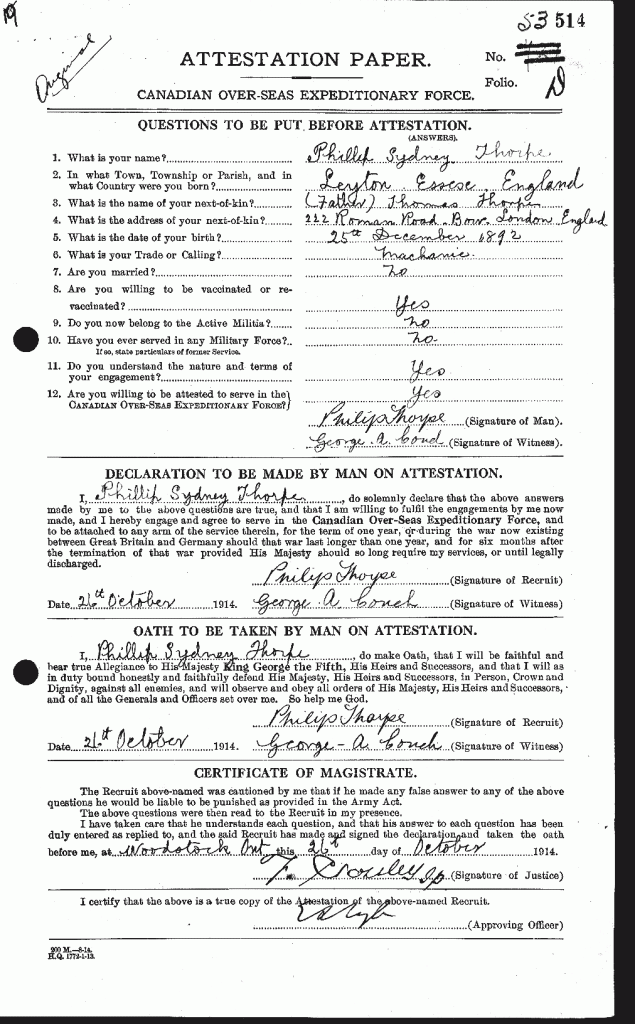 53 514
ATTESTATION PAPER.
No.
Original
Folio.
CANADIAN OVER-SEAS EXPEDITIONARY FORCE.
QUESTIONS TO BE PUT BEFORE ATTESTATION.
(ANSWERS).
1. What is your name? Phillip Sydney Thorpe
2. In what Town, Township or Parish, and in
what Country were you born? Leyton Essex England
3. What is the name of your next-of-kin? (Father) Thomas Thorpe
4. What is the address of your next-of-kin? 222 Roman Road Bow London England
5. What is the date of your birth? 25th December 1892
6. What is your Trade or Calling? Machanic
7. Are you married? no
8. Are you willing to be vaccinated or re-
vaccinated? Yes
9. Do you now belong to the Active Militia? no
10. Have you ever served in any Military Force? no
If so, state particulars of former Service.
11. Do you understand the nature and terms of
your engagement? Yes
12. Are you willing to be attested to serve in the Yes
CANADIAN OVER-SEAS EXPEDITIONARY FORCE?
Philip Thorpe (Signature of Man).
George A Couch (Signature of Witness).
DECLARATION TO BE MADE BY MAN ON ATTESTATION.
I, Phillip Sydney Thorpe, do solemnly declare that the above answers
made by me to the above questions are true, and that I am willing to fulfil the engagements by me now
made, and I hereby engage and agree to serve in the Canadian Over-Seas Expeditionary Force, and
to be attached to any arm of the service therein, for the term of one year, or during the war now existing
between Great Britain and Germany should that war last longer than one year, and for six months after
the termination of that war provided His Majesty should so long require my services, or until legally
discharged.
Philip Thorpe (Signature of Recruit)
Date 26th October 1914. George A Couch (Signature of Witness)
OATH TO BE TAKEN BY MAN ON ATTESTATION.
I, Phillip Sydney Thorpe, do make Oath, that I will be faithful and
bear true Allegiance to His Majesty King George the Fifth, His Heirs and Successors, and that I will as
in duty bound honestly and faithfully defend His Majesty, His Heirs and Successors, in Person, Crown and
Dignity, against all enemies, and will observe and obey all orders of His Majesty, His Heirs and Successors,
and of all the Generals and Officers set over me. So help me God.
Philip Thorpe (Signature of Recruit)
Date 26th October 1914. George A Couch (Signature of Witness)
CERTIFICATE OF MAGISTRATE.
The Recruit above-named was cautioned by me that if he made any false answer to any of the above
questions he would be liable to be punished as provided in the Army Act.
The above questions were then read to the Recruit in my presence.
I have taken care that he understands each question, and that his answer to each question has been
duly entered as replied to, and the said Recruit has made and signed the declaration and taken the oath
before me, at Woodstock Ont this 26th day of October 1914.
(Signature of Justice)
I certify that the above is a true copy of the Attestation of the above-named Recruit.
(Approving Officer)
200 M.—8-14.
H.Q. 1772-1-13.